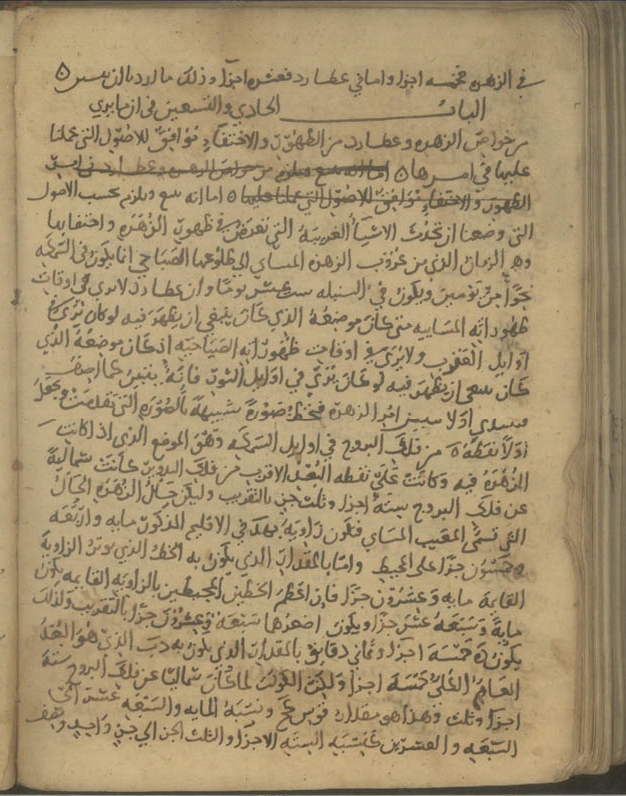 في الزهره خمسه اجزا واما في عطارد فعشره اجزا وذلك ما اردنا ان نبين ٥
الباب الحادي والتسعين في ان ما يرى
من خواص الزهره وعطارد من الظهور والاختفاء توافق للاصول التي عملنا
عليها في امرها ٥
الظهور والاختفاء توافق للاصول التي عملنا عليها ٥ اما انه يتبع ويلزم بحسب الاصول
التي وضعنا ان تحدث الاشياء الغريبه التي تعرض في ظهور الزهره واختفايها
وهو الزمان الذي من غروب الزهره المساي الى طلوعها الصباحي انما يكون في السمكه
نحوا من يومين ويكون في السنبله سته عشر يوما وان عطارد لا يرى في اوقات
ظهوراته المسايه متى كان موضعه الذي كان ينبغي ان يظهر فيه لو كان يرى
اوايل العقرب ولا يرى في اوقات ظهوراته الصباحيه اذ كان موضعه الذي
كان ينبغي ان يظهر فيه لو كان يرى في اوايل الثور فانه يتبين مما اصف
اولا امر الزهره فنخط صوره شبيهة بالصوره التي تقدمت ونجعل
اولا نقطه ه من فلك البروج في اوايل السمكه وهو الموضع الذي اذا كانت
الزهره فيه وكانت على نقطه البعد الاقرب من فلك التدوير كانت شمالية
عن فلك البروج سته اجزا وثلث جزء بالتقريب وليكن حال الزهره الحال
التي تسمى المغيب المساي فتكون زاوية في الاقليم المذكور مايه واربعه
وخمسون جزا على المحيط واما بالمقدار الذي يكون به الخط الذي يوتر الزاوية
القايمة مايه وعشرون جزا فان اعظم الخطين المحيطين بالزاويه القايمه يكون
ماية وسبعة عشر جزا ويكون اصغرهما سبعة وعشرون جزا بالتقريب ولذلك
يكون خمسة اجزا وثماني دقايق بالمقدار الذي يكون به الذي هو البعد
خمسة اجزا ولكن الكوكب لما كان شماليا عن فلك البروج سته
اجزا وثلث وهذا هو مقدار قوس ونسبة المايه والسبعه عشر الى
السبعه والعشرين كنسبه السته الاجزا والثلث الجزء الى جزء واحد ونصف